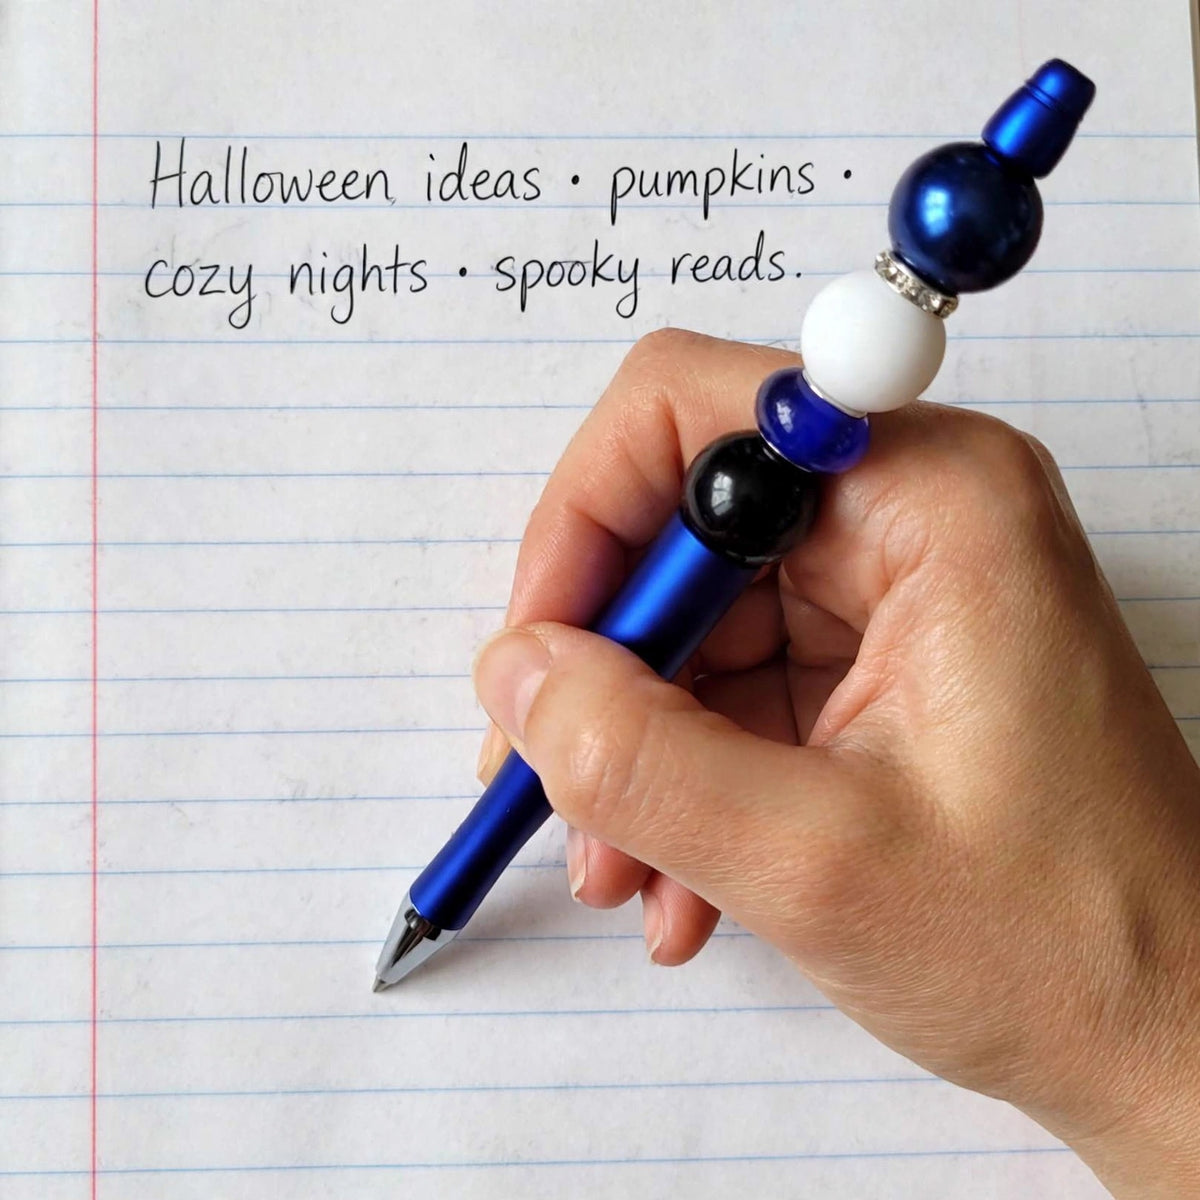 Halloween ideas • pumpkins •
cozy nights • spooky reads.